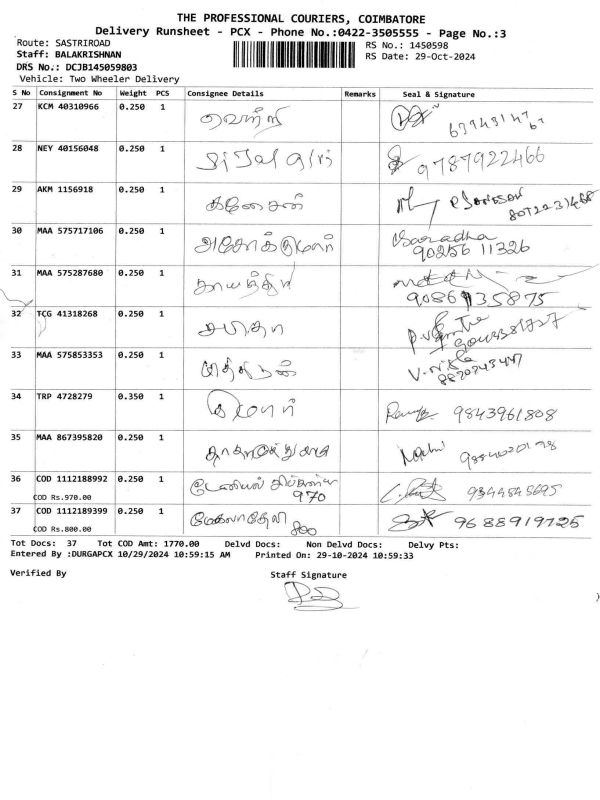 THE PROFESSIONAL COURIERS, COIMBATORE
Delivery Runsheet - PCX - Phone No.:0422-3505555 - Page No.:3
Route: SASTRIROAD
RS No.: 1450598
Staff: BALAKRISHNAN
RS Date: 29-Oct-2024
DRS No.: DCJB145059803
Vehicle: Two Wheeler Delivery
S No Consignment No Weight PCS Consignee Details Remarks Seal & Signature
27 KCM 40310966 0.250 1 வெற்றி
28 NEY 40156048 0.250 1 9787922466
29 AKM 1156918 0.250 1 கணேசன்
30 MAA 575717106 0.250 1 அசோக்குமார் Saradha
90256 11326
31 MAA 575287680 0.250 1 காயத்திரி
9086135875
32 TCG 41318268 0.250 1
33 MAA 575853353 0.250 1
34 TRP 4728279 0.350 1 9843961808
35 MAA 867395820 0.250 1
36 COD 1112188992 0.250 1 டேனியல்
COD Rs.970.00 970 9344545695
37 COD 1112189399 0.250 1 மேகலாதேவி 9688919725
COD Rs.800.00 800
Tot Docs: 37 Tot COD Amt: 1770.00 Delvd Docs: Non Delvd Docs: Delvy Pts:
Entered By :DURGAPCX 10/29/2024 10:59:15 AM Printed On: 29-10-2024 10:59:33
Verified By Staff Signature